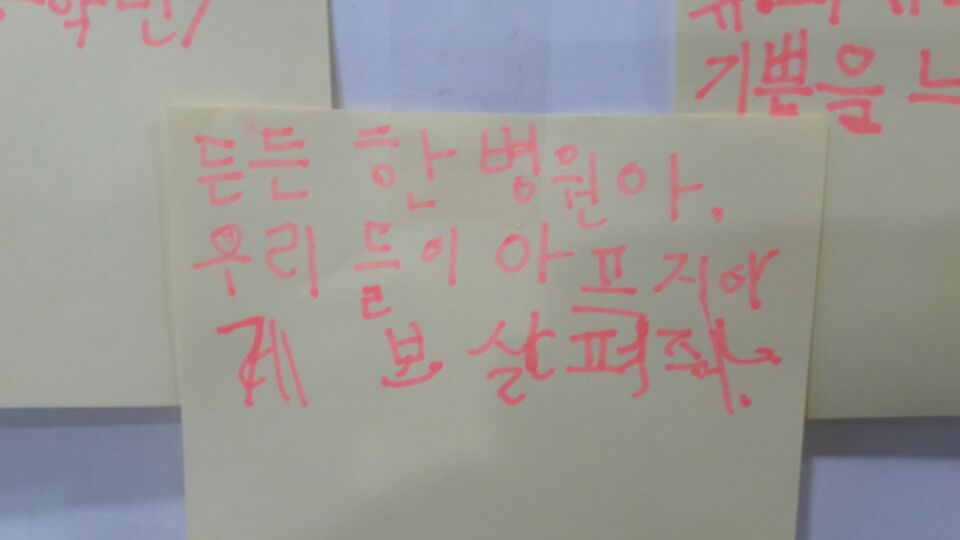 기쁜을 느
든든 한 병원아.
우리 들이 아프지아
게 보살펴줘.